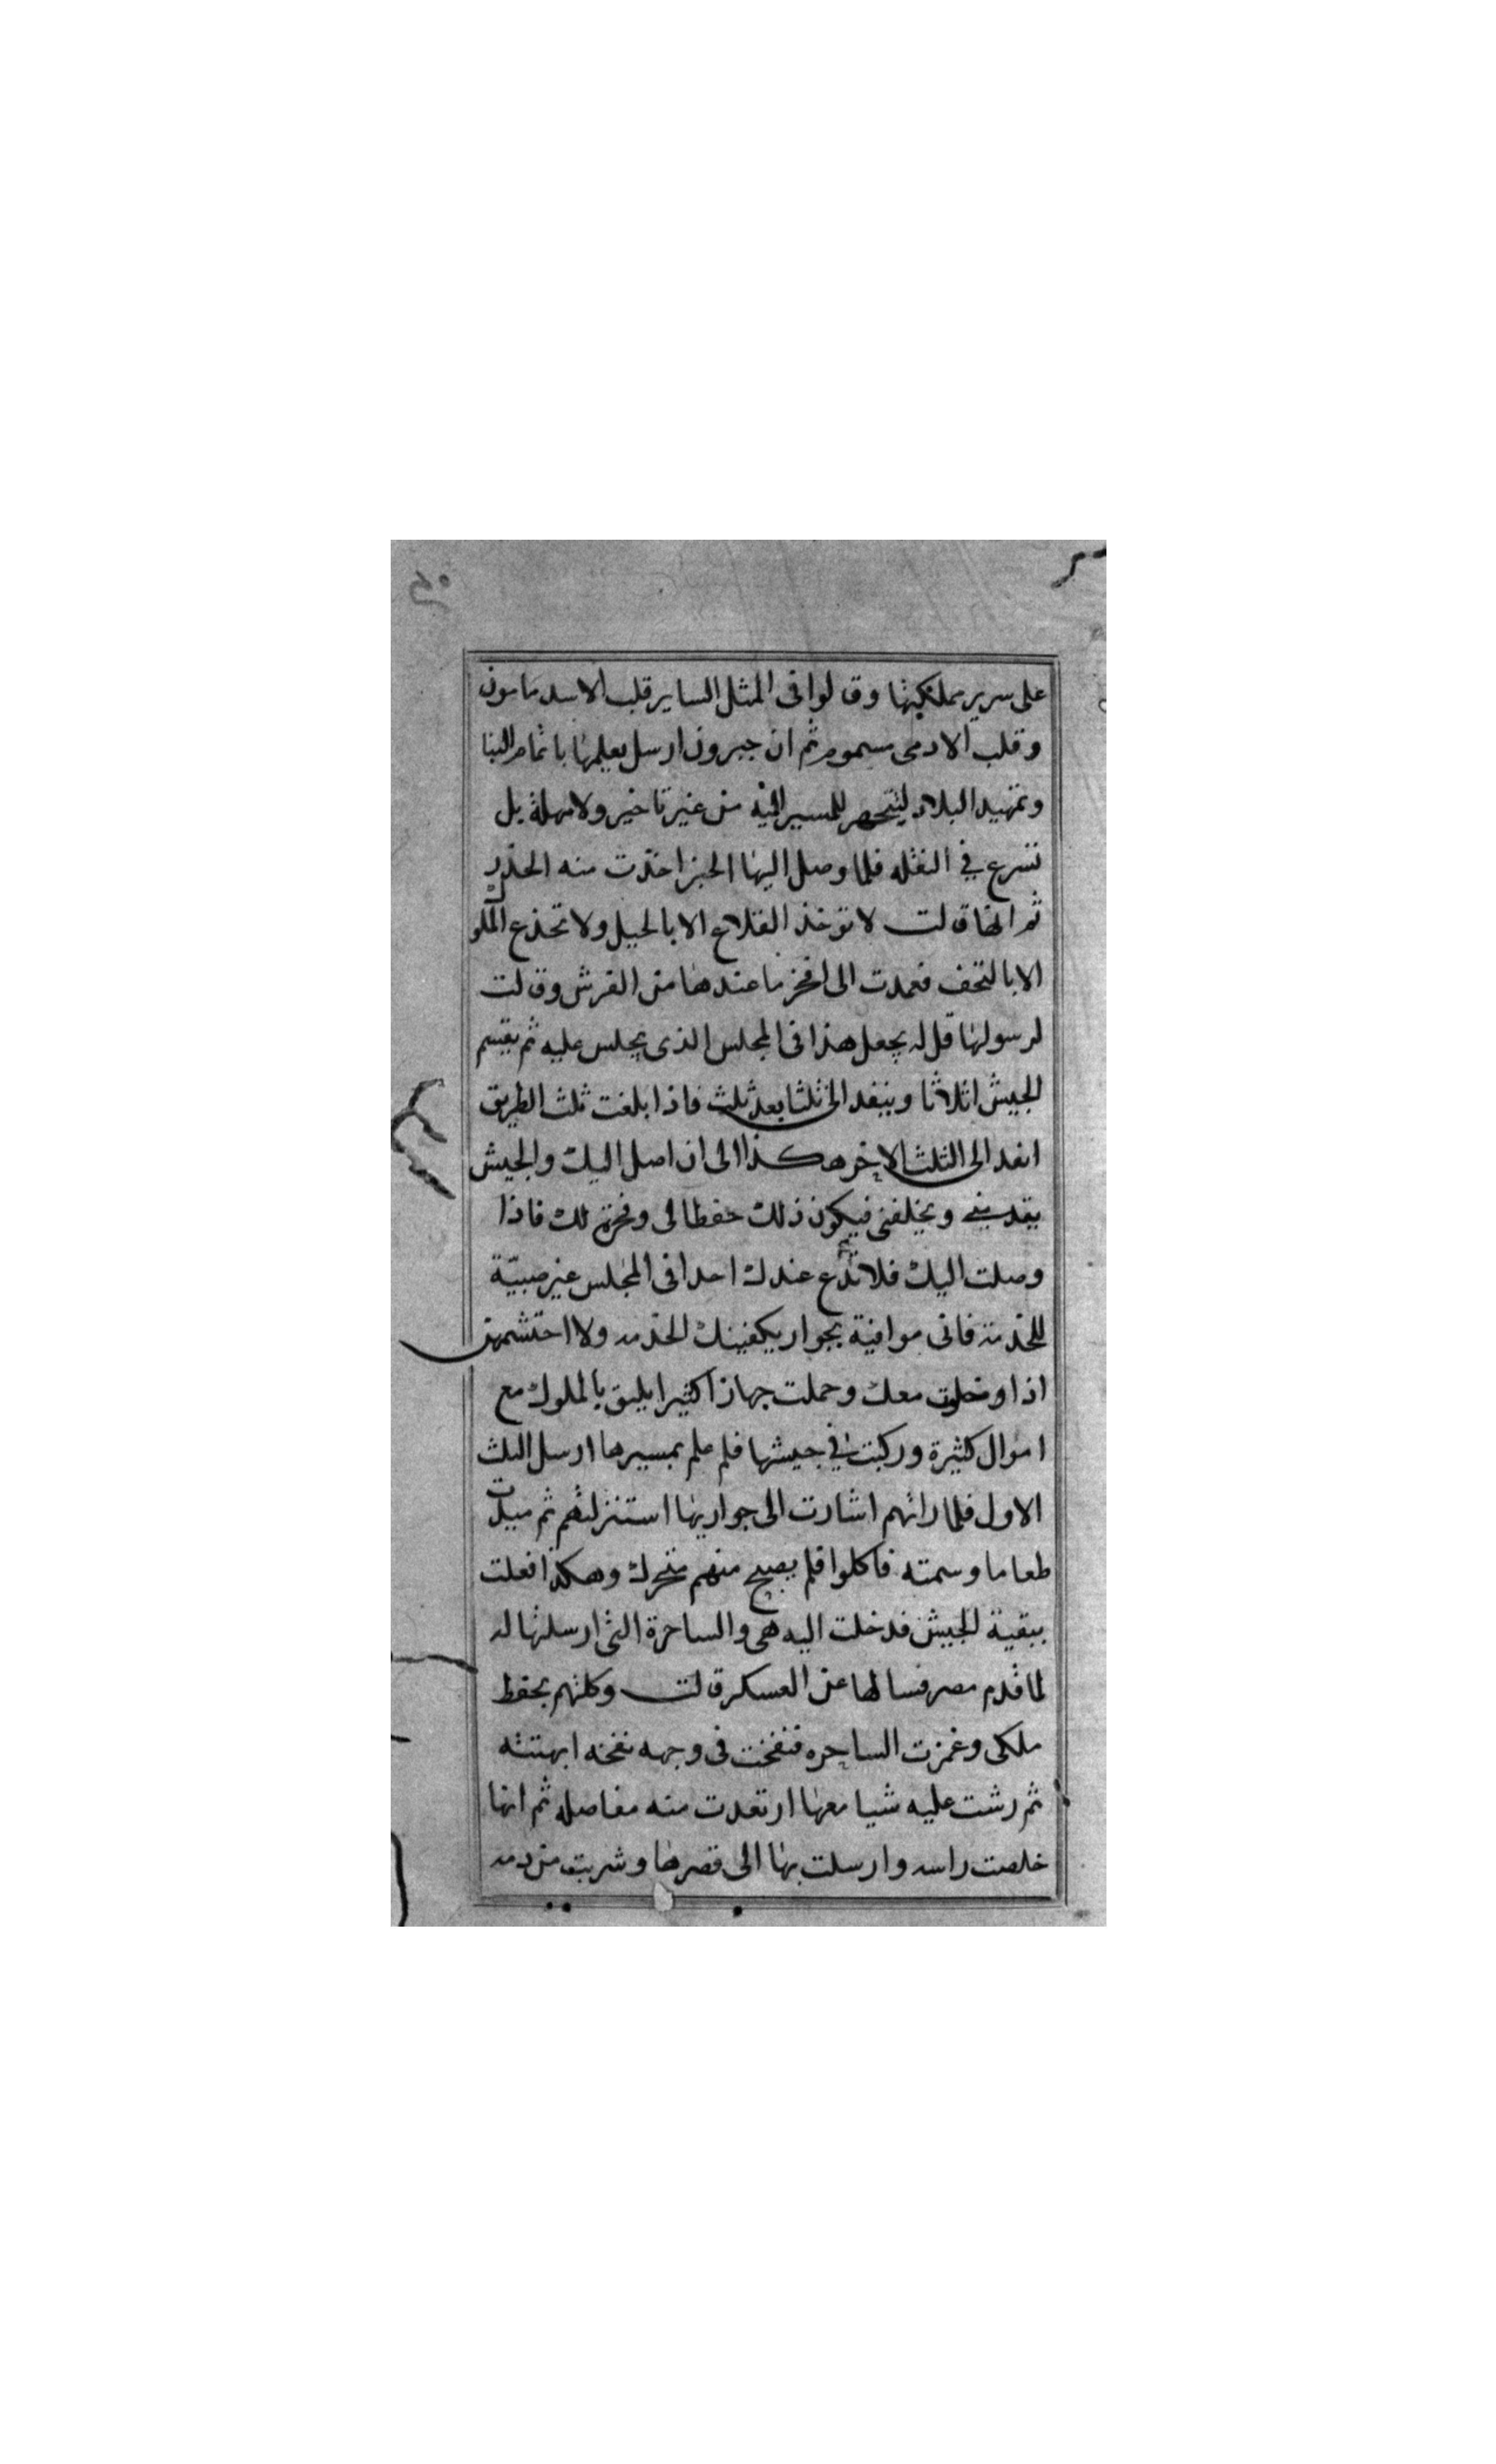 على سرير مملكتها وقالوا فى المثل الساير قلب الاسد مامون
وقلب الادمى مسموم ثم ان جيرون ارسل يعلمها باتمام البنا
وتمهيد البلاد ليتجهز للمسير اليه من غير تاخير ولا مهلة بل
تسرع في النقله فلما وصل اليها الخبر اخذت منه الحذر
ثم انها قالت لا توخذ القلاع الا بالحيل ولا تخدع الملوك
الا بالتحف فعمدت الى افخر ما عندها من الفرش وقالت
لرسولها قل له يجعل هذا فى المجلس الذى يجلس عليه ثم يقسم
الجيش اثلاثا وينفد الى ثلثا بعد ثلث فاذا بلغت ثلث الطريق
انفد الى الثلث الاخر هكذا الى ان اصل اليك والجيش
يقدمني ويخلفنى فيكون ذلك حفظا لى وفخرة لك فاذا
وصلت اليك فلا تدع عندك احدا فى المجلس غير صبيّة
للخدمة فانى موافية بجوار يكفينك الخدمه ولا احتشمهن
اذا وخلوت معك وحملت جهازا كثيرا يليق بالملوك مع
اموال كثيرة وركبت في جيشها فلم علم بمسيرها ارسل الثلث
الاول فلما راتهم اشارت الى جواريها استنزلتهم ثم ميلت
طعاما وسمته فاكلوا فلم يصبح منهم متحرك وهكذا فعلت
ببقية الجيش فدخلت اليه هى والساحرة التى ارسلتها له
لما قدم مصر فسالها عن العسكر قالت وكلتهم بحفظ
ملكى وغمزت الساحره فنفخت فى وجهه نفخه ابهتته
ثم رشت عليه شيا معها ارتعدت منه مفاصله ثم انها
خلصت راسه وارسلت بها الى قصرها وشربت من دمه